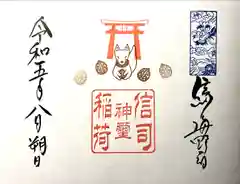 信司
神璽
稲荷
令和五年八月朔日